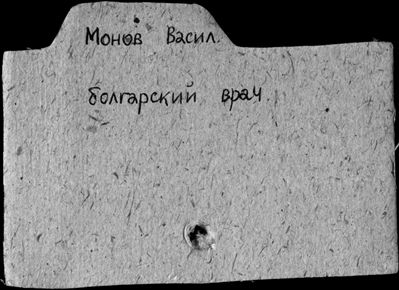 Монов Васил.
болгарский врач.